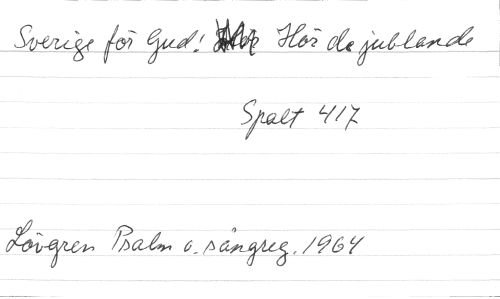 Sverige för Gud! Hör de jublande
Spalt 417
Lövgren Psalm o. sångreg. 1964